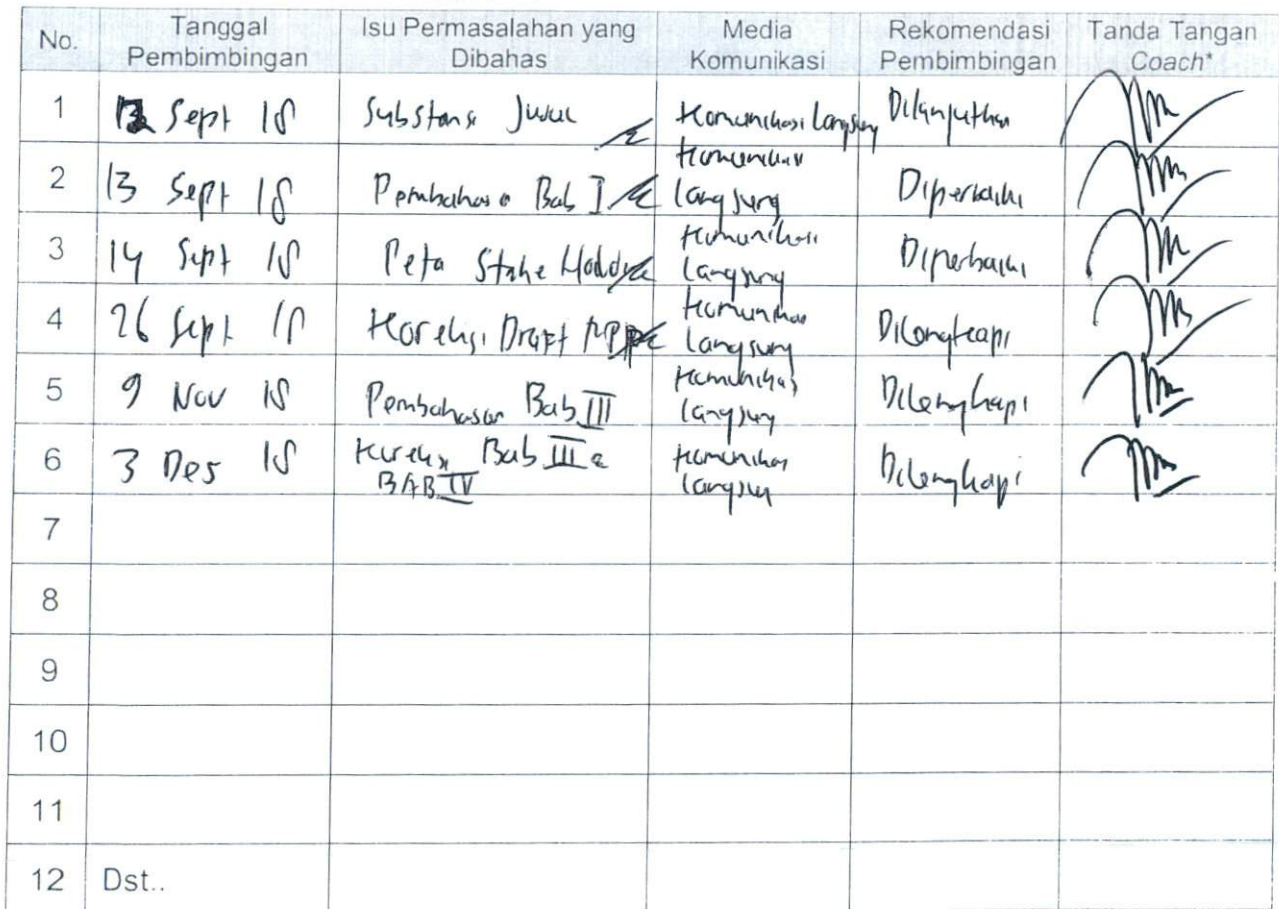 No. Tanggal Pembimbingan Isu Permasalahan yang Dibahas Media Komunikasi Rekomendasi Pembimbingan Tanda Tangan Coach*
1 12 Sept 18 Substansi Judul Komunikasi Langsung Dilanjutkan
2 13 Sept 18 Pembahasan Bab I Komunikasi Langsung Diperbaiki
3 14 Sept 18 Peta Stake Holder Komunikasi Langsung Diperbaiki
4 26 Sept 18 Koreksi Draft Komunikasi Langsung Dilengkapi
5 9 Nov 18 Pembahasan Bab III Komunikasi Langsung Dilengkapi
6 3 Des 18 Koreksi Bab III & BAB IV Komunikasi Langsung Dilengkapi
7
8
9
10
11
12 Dst..